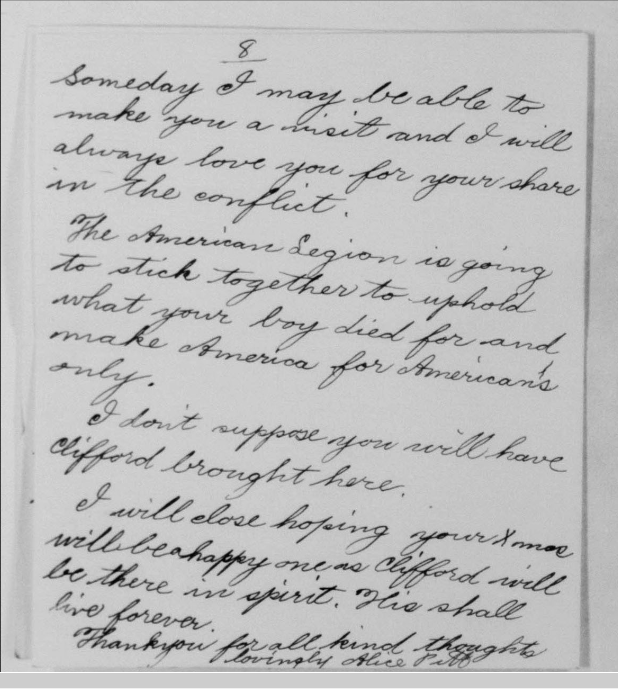 8
Someday I may be able to
make you a visit and I will
always love you for your share
in the conflict.
The American Legion is going
to stick together to uphold
what your boy died for and
make America for American's
only.
I don't suppose you will have
Clifford brought here.
I will close hoping your Xmas
will be a happy one as Clifford will
be there in spirit. His shall
live forever.
Thank you for all kind thoughts
lovingly Alice Pitt